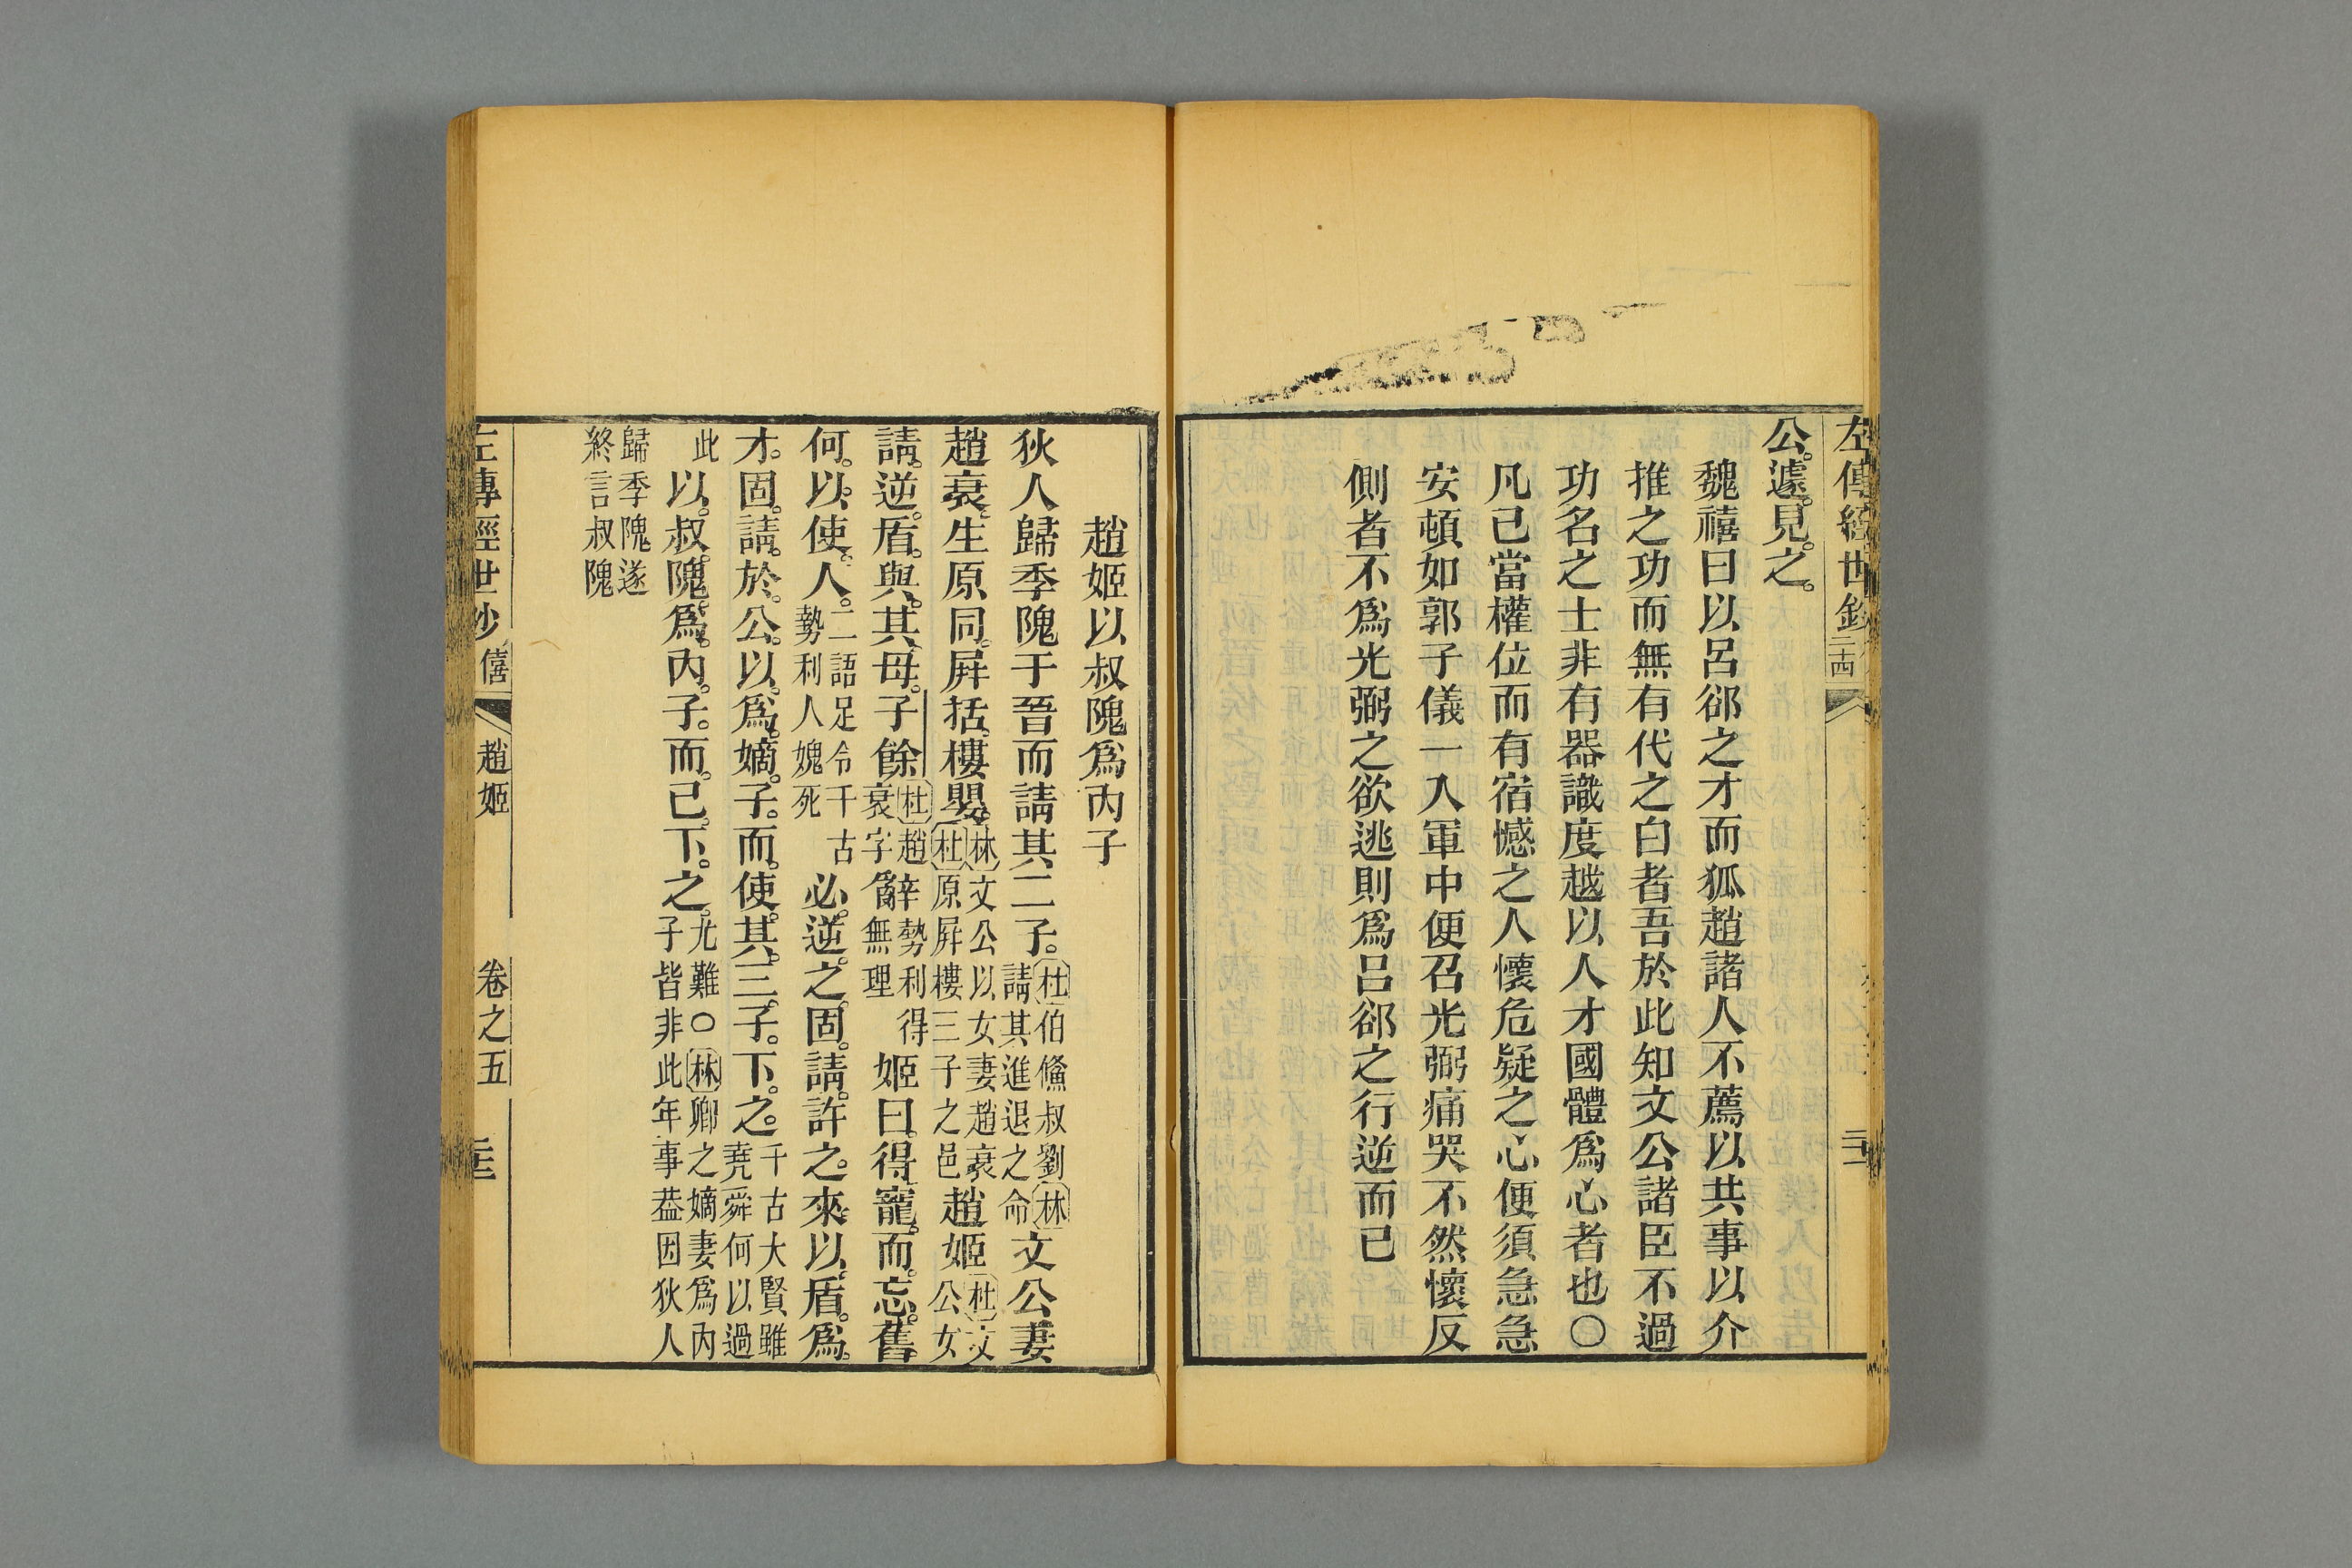 左傳經世鈔
公遽見之
魏禧曰以呂郤之才而狐趙諸人不薦以共事以介
推之功而無有代之白者吾於此知文公諸臣不過
功名之士非有器識度越以人才國體爲心者也〇
凡已當權位而有宿憾之人懷危疑之心便須急急
安頓如郭子儀一入軍中便召光弼痛哭不然懷反
側者不爲光弼之欲逃則爲呂郤之行逆而已
趙姬以叔隗爲內子
狄人歸季隗于晉而請其二子。杜伯鯈叔劉林請其進退之命文公妻
趙衰生原同屛括樓嬰林文公以女妻趙衰杜原屛樓三子之邑趙姬杜文公女
請逆盾與其母子餘杜趙衰字辛勢利得爲無理姬曰得寵而忘舊
何以使人二語足令千古勢利人媿死必逆之固請許之來以盾爲
才固請於公以爲嫡子而使其三子下之千古大賢雖堯舜何以過
此以叔隗爲內子而己下之尤難〇林卿之嫡妻爲內子皆非此年事葢因狄人
歸季隗遂終言叔隗
左傳經世鈔 僖 趙姬 卷之五